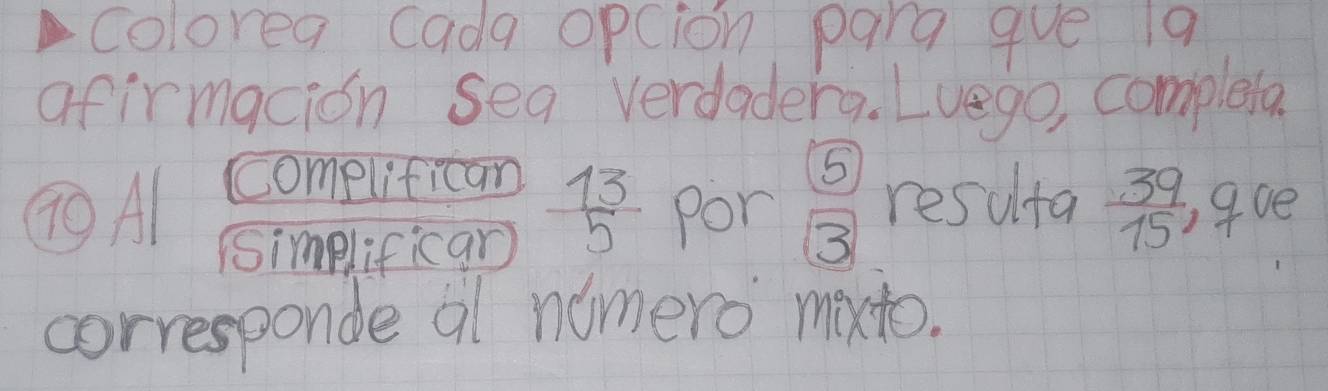 ▶ colorea cada opción para que la
afirmación sea verdadera. Luego, completa.
10 Al complifican simplificar 13/5 por 5 3 resulta 39/15, que
corresponde al número mixto.